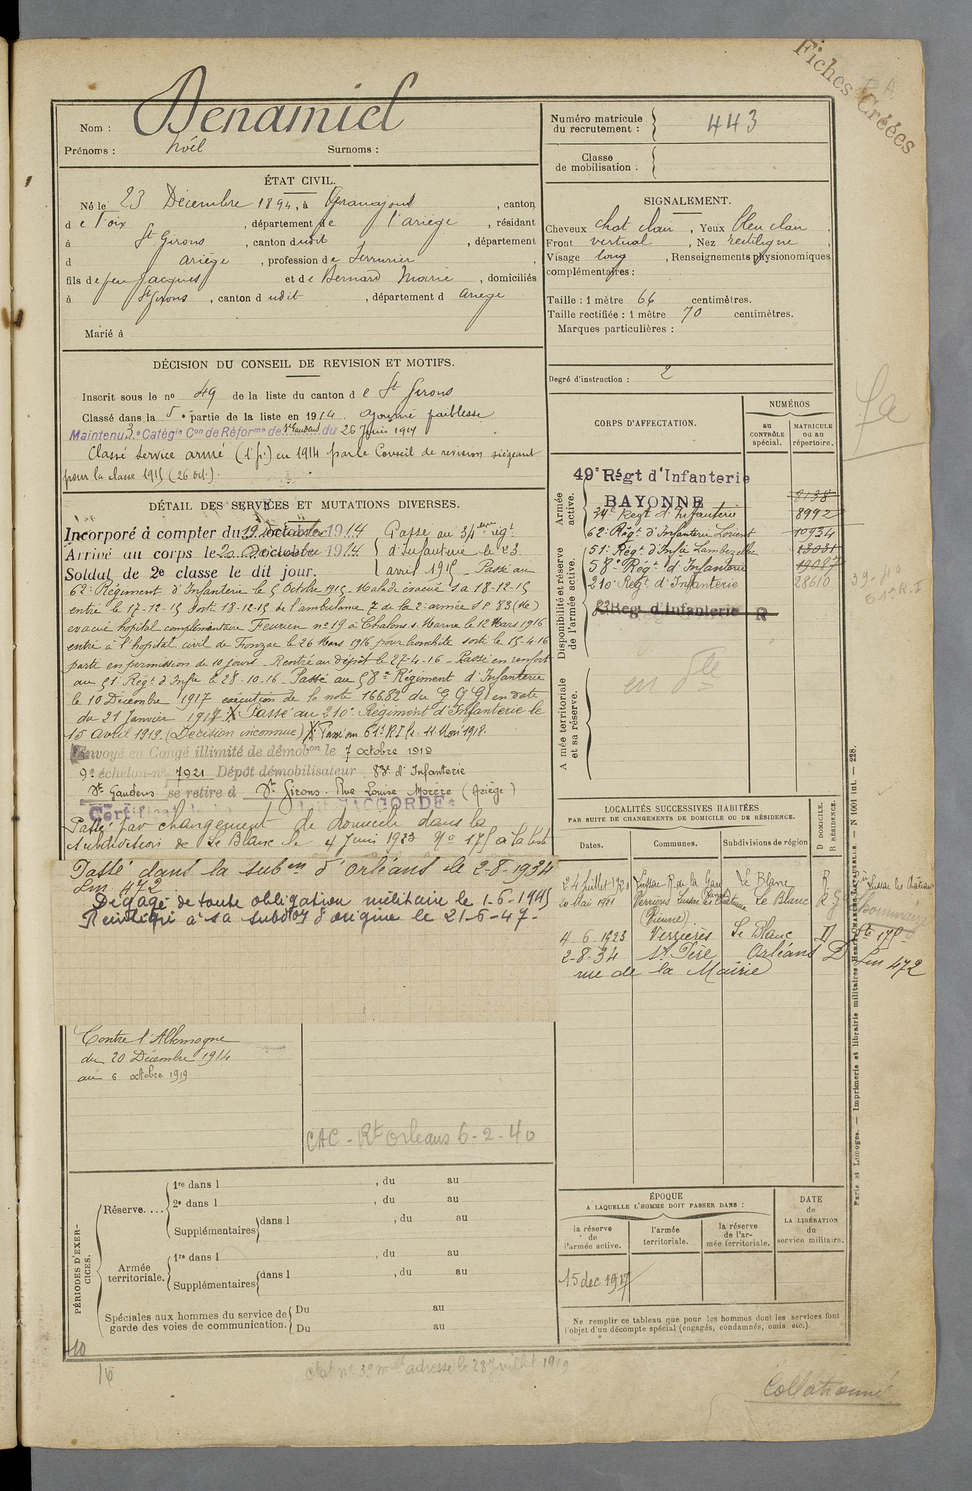 Fiches Créées
Nom : Denamiel
Prénoms : Noël Surnoms :
Numéro matricule du recrutement : 443
Classe de mobilisation :
ÉTAT CIVIL.
Né le 23 Décembre 1894, à , canton
de Foix , département de l'Ariège , résidant
à St Girons , canton dudit , département
d ariège , profession de Serrurier ,
fils de feu Jacques et de Bernard Marie , domiciliés
à St Girons , canton dudit , département d Ariège
Marié à
SIGNALEMENT.
Cheveux chat clair , Yeux bleu clair ,
Front vertical , Nez rectiligne ,
Visage long , Renseignements physionomiques
complémentaires :
Taille : 1 mètre 66 centimètres.
Taille rectifiée : 1 mètre 70 centimètres.
Marques particulières :
Degré d'instruction : 2
DÉCISION DU CONSEIL DE REVISION ET MOTIFS.
Inscrit sous le no 49 de la liste du canton de St Girons
Classé dans la 5 e partie de la liste en 1914. Ajourné faiblesse
Maintenu 3e Catégie Con de Réforme de St Gaudens du 26 Juin 1914
Classé Service armé (1 p.) en 1914 par le Conseil de revision siégeant
pour la classe 1915 (26 oct.).
DÉTAIL DES SERVICES ET MUTATIONS DIVERSES.
Incorporé à compter du 19 1914 Passé au 34ème régt
Arrivé au corps le 20 1914 d'Infanterie le 23
Soldat de 2e classe le dit jour. avril 1915 - Passé au
62e Régiment d'Infanterie le 5 Octobre 1915. Malade évacué sa 18-12-15
entré le 17-12-15 sorti 18-12-15 de l'ambulance 7 de la 2e armée S.P. 83
evacué hôpital complémentaire no 19 à Chalons s. Marne le 12 Mars 1916
entré à l'hôpital civil de Jonzac le 26 Mars 1916 pour bronchite sorti le 15-4-16
parti en permission de 10 jours - Rentré au dépôt le 27-4-16 - Passé en renfort
au 51 Régt d'Infie le 28-10-16 - Passé au 58e Régiment d'Infanterie
le 10 Décembre 1917 exécution de la note 16682 du G Q G en date
du 21 Janvier 1917 X Passé au 210e Régiment d'Infanterie le
15 avril 1919. (Décision inconnue) X Passé au 61e R.I. le 11 Nov 1918.
Envoyé en Congé illimité de démobon le 7 octobre 1919
9e échelon - no 1921 Dépôt démobilisateur 83e d'Infanterie
St Gaudens se retire à St Girons. Rue Louise Morère (Ariège)
ACCORDÉ
Passé par changement de domicile dans la
subdivision de Le Blanc le 4 Juin 1923 No 175
Passé dans la subon d'Orléans le 2-8-1934
Lm 472
Dégagé de toute obligation militaire le 1-6-1945
Réintégré à sa subdon d'origine le 21-6-47.
Contre l'Allemagne
du 20 Décembre 1914
au 6 octobre 1919
CAC - Rt Orléans 6-2-40
CORPS D'AFFECTATION.
NUMÉROS
au CONTRÔLE spécial.
MATRICULE ou au répertoire.
Armée active.
49e Régt d'Infanterie
BAYONNE 8138
34e Régt d'Infanterie 8992
62e Régt d'Infanterie Lorient 10934
Disponibilité et réserve de l'armée active.
51e Régt d'Infie Lambezellec 13031
58e Régt d'Infanterie 19087
210e Régt d'Infanterie 28610
83 Régt d'Infanterie R
Armée territoriale et sa réserve.
LOCALITÉS SUCCESSIVES HABITÉES
PAR SUITE DE CHANGEMENTS DE DOMICILE OU DE RÉSIDENCE.
Dates. Communes. Subdivisions de région D DOMICILE. R RÉSIDENCE.
24 juillet 1920 Lussac R. de la Gare Le Blanc R
20 Mai 1921 Verrières Lussac les Châteaux Le Blanc R
(Vienne)
4-6-1923 Verrières Le Blanc D
2-8-34 St Père Orléans D Lm 472
rue de la Mairie
ÉPOQUE
A LAQUELLE L'HOMME DOIT PASSER DANS :
la réserve de l'armée active.
l'armée territoriale.
la réserve de l'armée territoriale.
DATE de LA LIBÉRATION du service militaire.
15 dec 1917
Ne remplir ce tableau que pour les hommes dont les services font
l'objet d'un décompte spécial (engagés, condamnés, omis, etc.).
PÉRIODES D'EXERCICES.
Réserve....
1re dans l , du au
2e dans l , du au
Supplémentaires dans l , du au
Armée territoriale.
1re dans l , du au
Supplémentaires dans l , du au
Spéciales aux hommes du service de garde des voies de communication.
Du au
Du au
Paris et Limoges. — Imprimerie et librairie militaires Henri CHARLES-LAVAUZELLE. — N 1001 int. — 228.
adressé le 28 Juillet 1919
Collationné